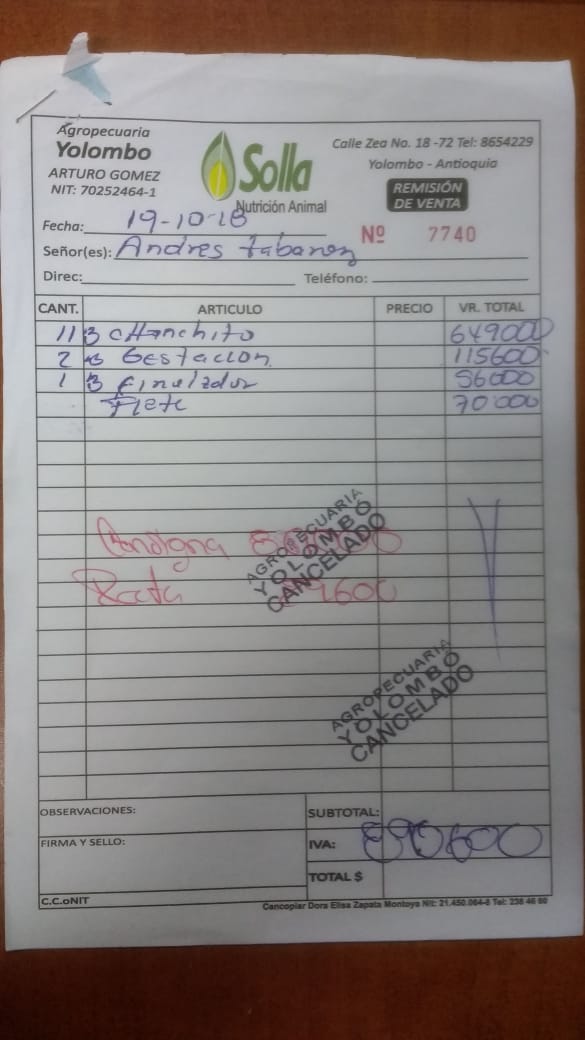 Agropecuaria
Yolombo
ARTURO GOMEZ
NIT: 70252464-1
Solla
Nutrición Animal
Calle Zea No. 18 -72 Tel: 8654229
Yolombo - Antioquia
REMISIÓN
DE VENTA
Fecha: 19-10-18
Nº 7740
Señor(es): Andres tabarez
Direc: Teléfono:
CANT. ARTICULO PRECIO VR. TOTAL
11 B cHanchito 649000
2 B Gestacion 115600
1 B Finalizador 56000
Flete 70'000
Consigna
Resta
AGROPECUARIA
YOLOMBÓ
CANCELADO
AGROPECUARIA
YOLOMBÓ
CANCELADO
OBSERVACIONES: SUBTOTAL:
FIRMA Y SELLO: IVA: 890600
TOTAL $
C.C.oNIT
Cancopiar Dora Elisa Zapata Montoya Nit: 21.450.064-8 Tel: 238 46 60